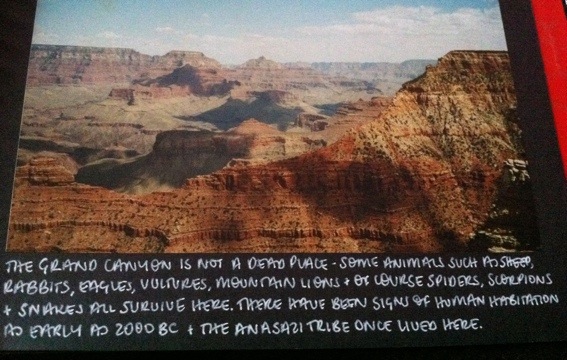 THE GRAND CANYON IS NOT A DEAD PLACE - SOME ANIMALS SUCH AS SHEEP,
RABBITS, EAGLES, VULTURES, MOUNTAIN LIONS + OF COURSE SPIDERS, SCORPIONS
+ SNAKES ALL SURVIVE HERE. THERE HAVE BEEN SIGNS OF HUMAN HABITATION
AS EARLY AS 2000 BC + THE ANASAZI TRIBE ONCE LIVED HERE.